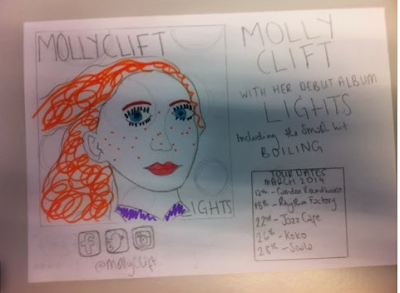 MOLLY CLIFT
LIGHTS
@mollyclift
MOLLY
CLIFT
WITH HER DEBUT ALBUM
LIGHTS
Including the Smash hit
BOILING
TOUR DATES
MARCH 2014
12th - Camden Roundhouse
18th - Rhythm Factory
22nd - Jazz Cafe
26th - Koko
28th - Scala